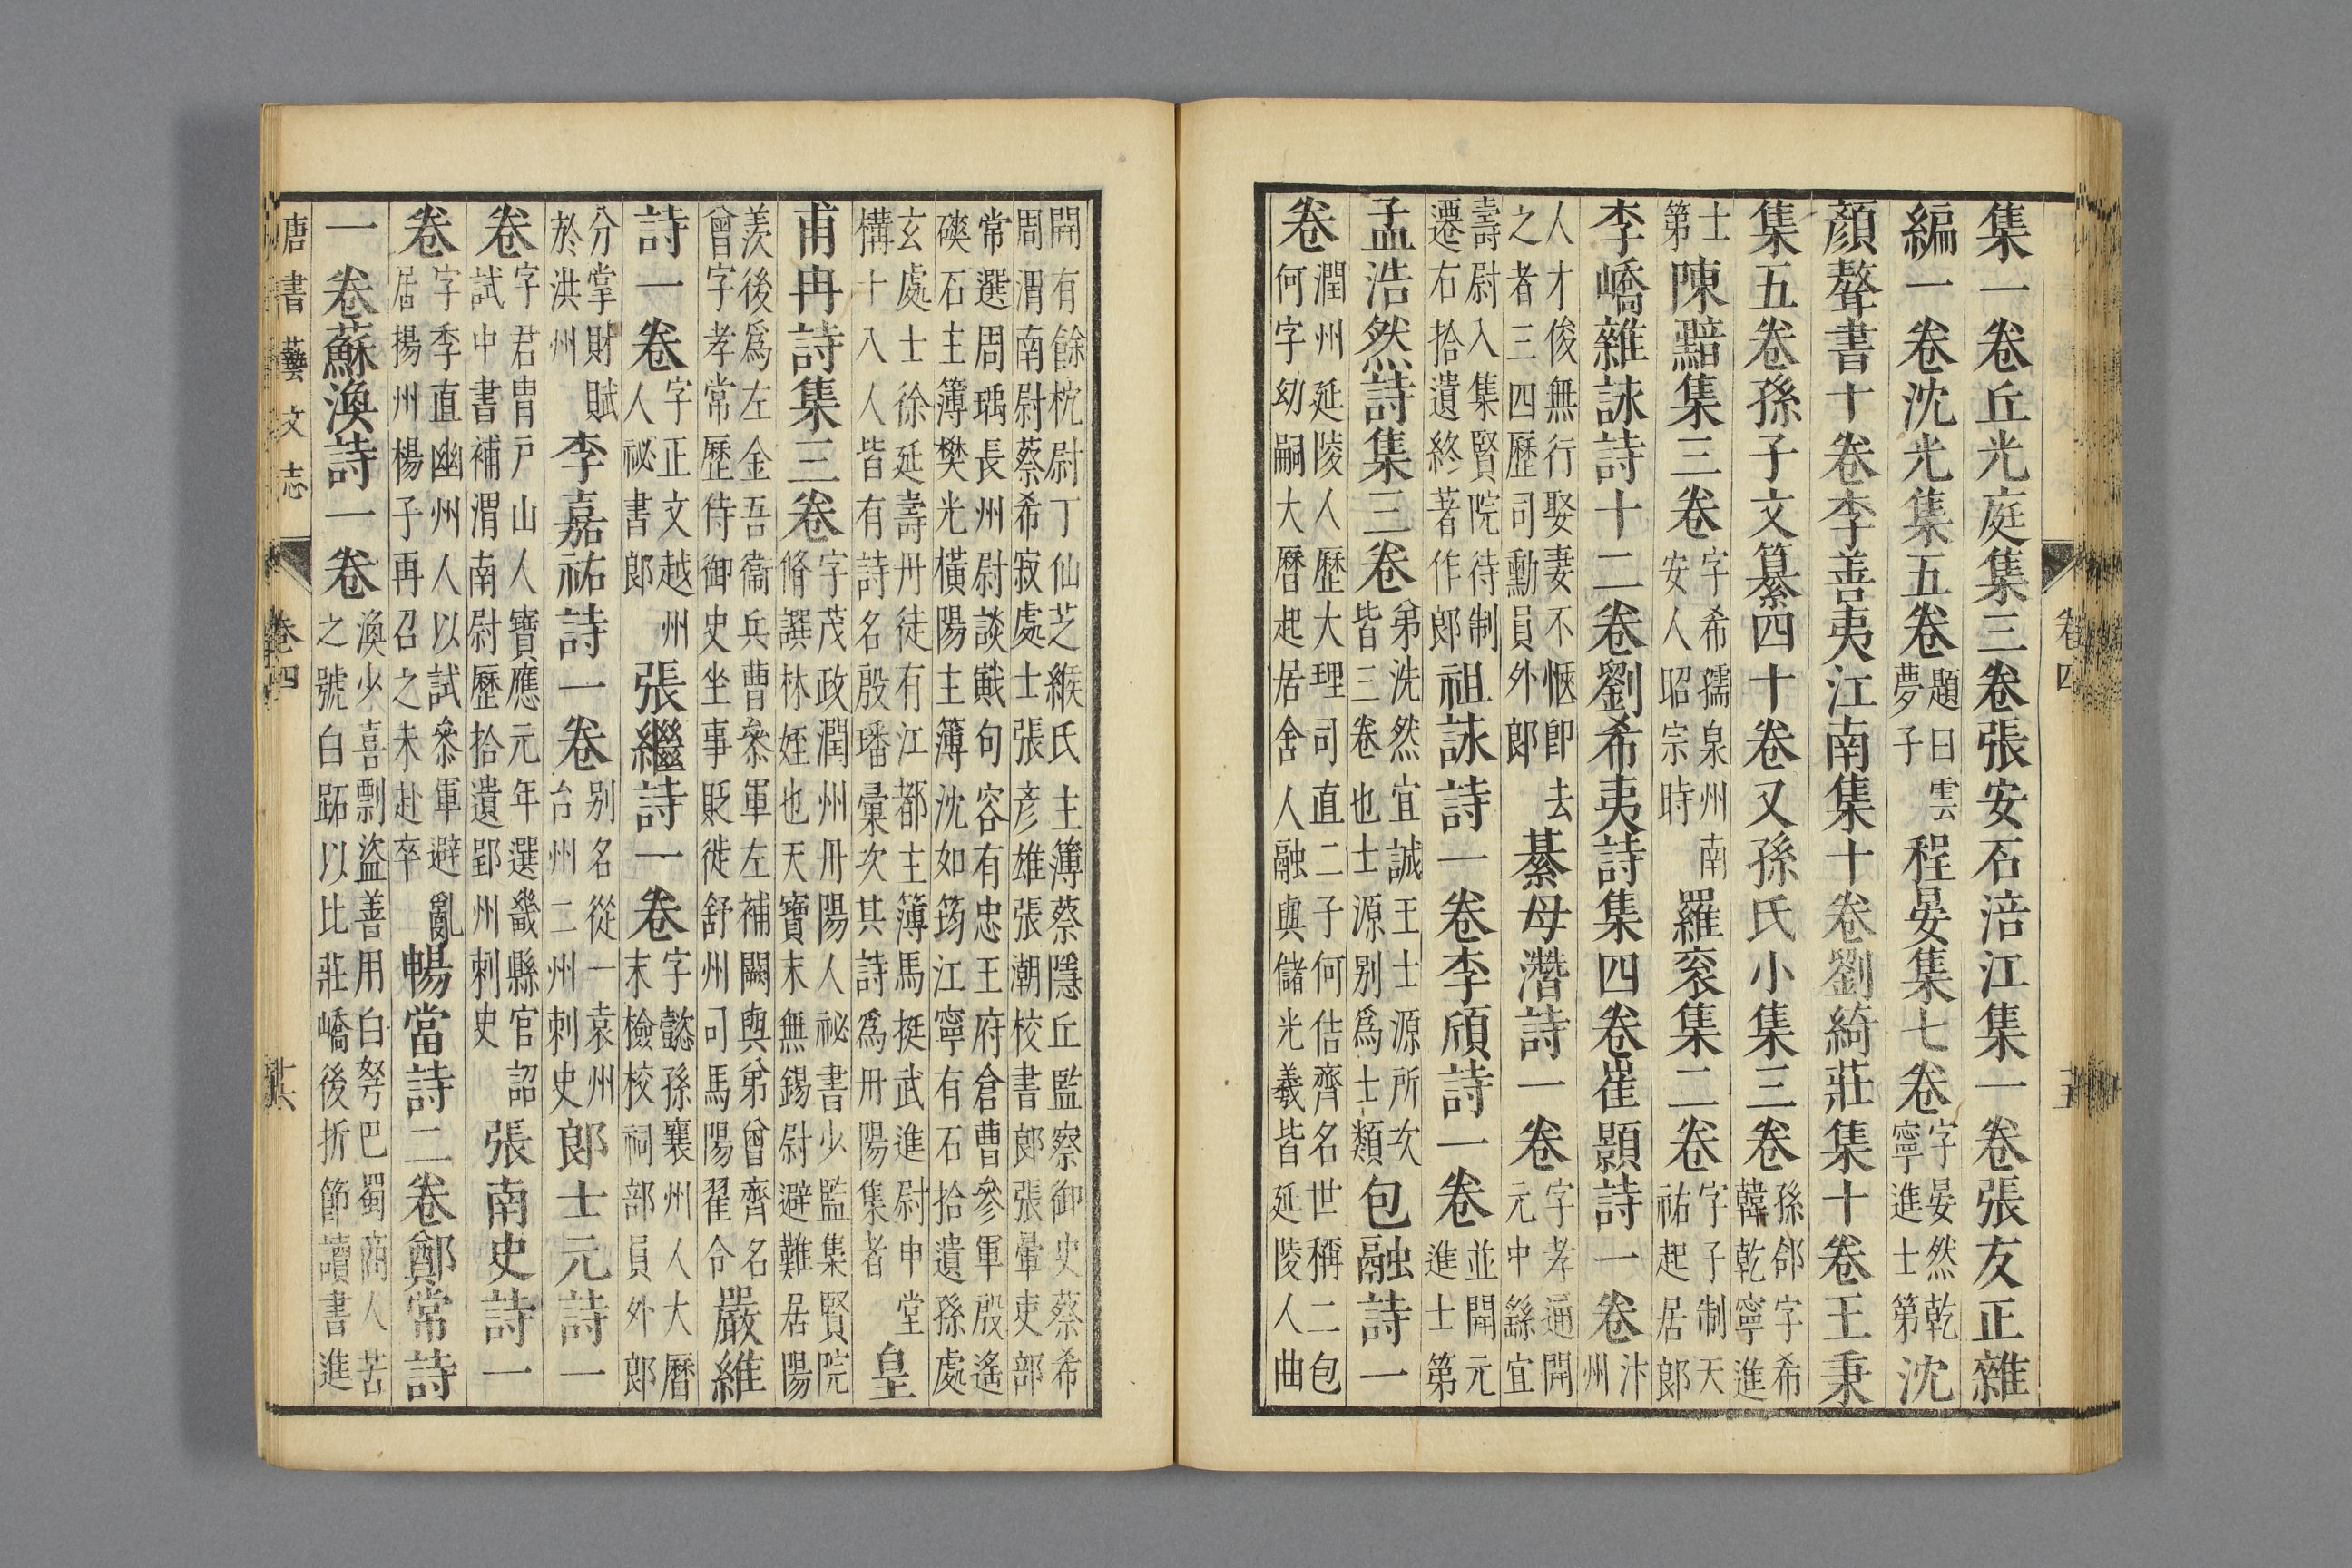 集一卷丘光庭集三卷張安石涪江集一卷張友正雜
編一卷沈光集五卷題曰雲夢子程晏集七卷字晏然乾寧進士第沈
顏聱書十卷李善夷江南集十卷劉綺莊集十卷王秉
集五卷孫子文纂四十卷又孫氏小集三卷孫郃字希韓乾寧進
士第陳黯集三卷字希孺泉州南安人昭宗時羅衮集二卷字子制天祐起居郎
李嶠雜詠詩十二卷劉希夷詩集四卷崔顥詩一卷汴州
人才俊無行娶妻不愜即去之者三四歷司勳員外郎綦母潛詩一卷字孝通開元中繇宜
壽尉入集賢院待制遷右拾遺終著作郎祖詠詩一卷李頎詩一卷並開元進士第
孟浩然詩集三卷弟洗然宜誠王士源所次皆三卷也士源别爲士類包融詩一
卷潤州延陵人歷大理司直二子何佶齊名世稱二包何字幼嗣大曆起居舍人融與儲光羲皆延陵人曲
開有餘杭尉丁仙芝緱氏主簿蔡隱丘監察御史蔡希周渭南尉蔡希寂處士張彥雄張潮校書郎張暈吏部
常選周瑀長州尉談戭句容有忠王府倉曹參軍殷遙硤石主簿樊光橫陽主簿沈如筠江寧有石拾遺孫處
玄處士徐延壽丹徒有江都主簿馬挺武進尉申堂構十八人皆有詩名殷璠彙次其詩爲丹陽集者皇
甫冉詩集三卷字茂政潤州丹陽人祕書少監集賢院脩譔林姪也天寶末無錫尉避難居陽
羨後爲左金吾衞兵曹叅軍左補闕與弟曾齊名曾字孝常歷待御史坐事貶徙舒州司馬陽翟令嚴維
詩一卷字正文越州人祕書郎張繼詩一卷字懿孫襄州人大曆末檢校祠部員外郎
分掌財賦於洪州李嘉祐詩一卷别名從一袁州台州二州刺史郎士元詩一
卷字君胄戶山人寶應元年選畿縣官詔試中書補渭南尉歷拾遺郢州刺史張南史詩一
卷字季直幽州人以試叅軍避亂居揚州楊子再召之未赴卒暢當詩二卷鄭常詩
一卷蘇渙詩一卷渙少喜剽盜善用白弩巴蜀商人苦之號白跖以比莊嶠後折節讀書進
唐書藝文志 卷四 十六